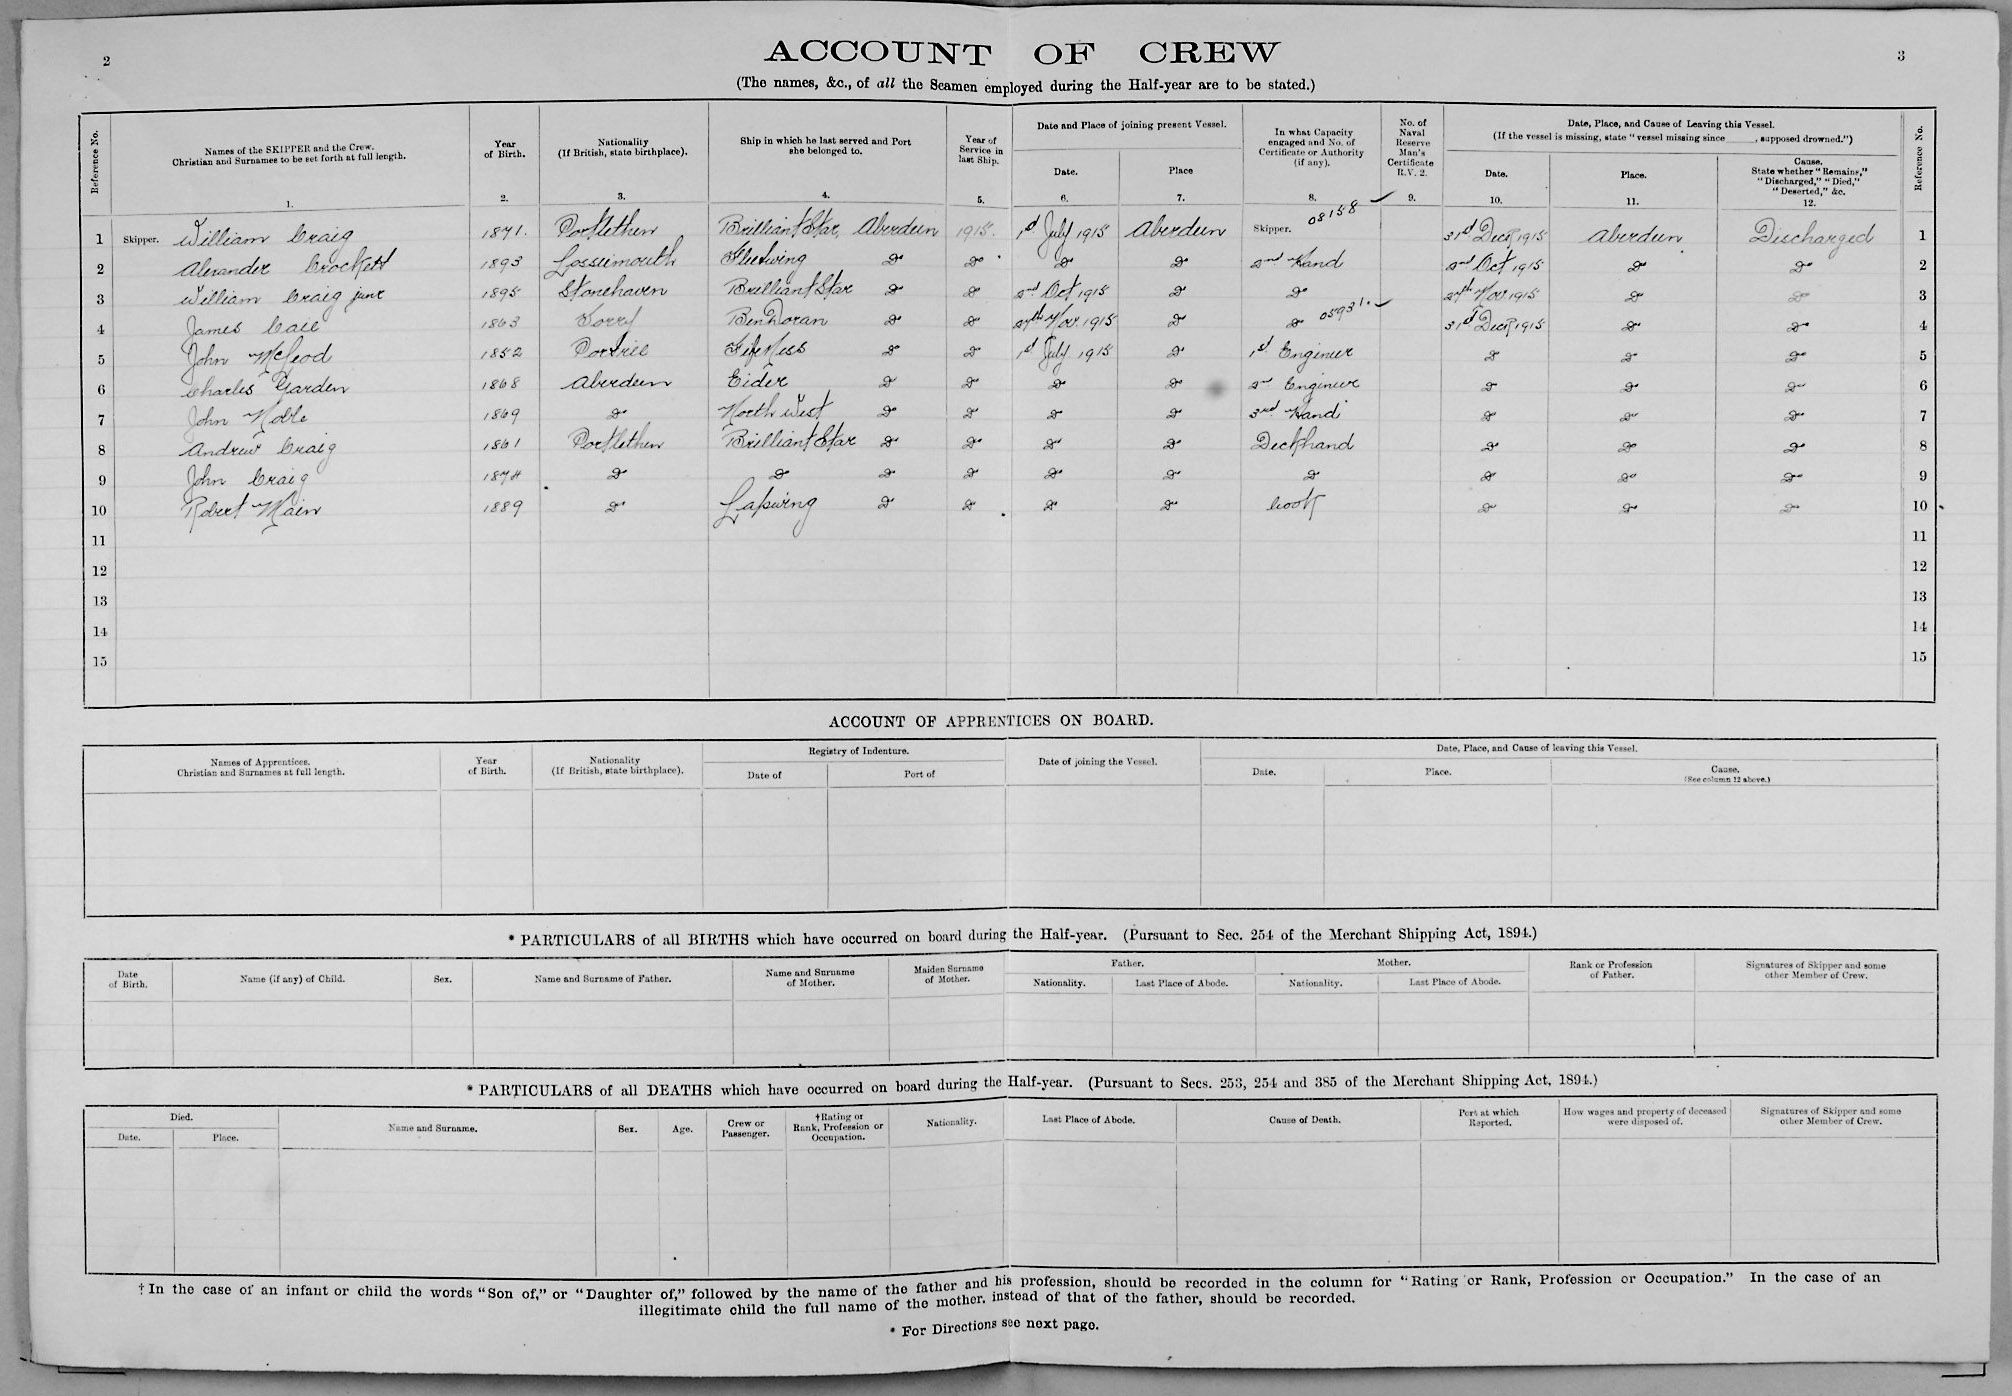 2
ACCOUNT OF CREW
3
(The names, &c., of all the Seamen employed during the Half-year are to be stated.)
Reference No.
Names of the SKIPPER and the Crew. Christian and Surnames to be set forth at full length. 1.
Year of Birth. 2.
Nationality (If British, state birthplace). 3.
Ship in which he last served and Port she belonged to. 4.
Year of Service in last Ship. 5.
Date and Place of joining present Vessel.
Date. 6.
Place 7.
In what Capacity engaged and No. of Certificate or Authority (if any). 8.
No. of Naval Reserve Man's Certificate R.V. 2. 9.
Date, Place, and Cause of Leaving this Vessel.
(If the vessel is missing, state "vessel missing since , supposed drowned.")
Date. 10.
Place. 11.
Cause. State whether "Remains," "Discharged," "Died," "Deserted," &c. 12.
Reference No.
1 Skipper. William Craig 1871. Portlethen Brilliant Star, Aberdeen 1915. 1st July 1915 Aberdeen Skipper. 08158 31st Decr 1915 Aberdeen Discharged 1
2 Alexander Crockett 1893 Lossiemouth Fleetwing Do Do Do Do 2nd Hand 2nd Oct 1915 Do Do 2
3 William Craig junr 1895 Stonehaven Brilliant Star Do Do 2nd Oct 1915 Do Do 27th Nov 1915 Do Do 3
4 James Caie 1863 Torry Ben Doran Do Do 27th Nov. 1915 Do Do 05931. 31st Decr 1915 Do Do 4
5 John McLeod 1852 Portree Fife Ness Do Do 1st July 1915 Do 1st Engineer Do Do Do 5
6 Charles Garden 1868 Aberdeen Eider Do Do Do Do 2nd Engineer Do Do Do 6
7 John Noble 1869 Do North West Do Do Do Do 3rd Hand Do Do Do 7
8 Andrew Craig 1861 Portlethen Brilliant Star Do Do Do Do Deckhand Do Do Do 8
9 John Craig 1874 Do Do Do Do Do Do Do Do Do Do 9
10 Robert Main 1889 Do Lapwing Do Do Do Do Cook Do Do Do 10
11 11
12 12
13 13
14 14
15 15
ACCOUNT OF APPRENTICES ON BOARD.
Names of Apprentices. Christian and Surnames at full length.
Year of Birth.
Nationality (If British, state birthplace).
Registry of Indenture.
Date of
Port of
Date of joining the Vessel.
Date, Place, and Cause of leaving this Vessel.
Date.
Place.
Cause. (See column 12 above.)
* PARTICULARS of all BIRTHS which have occurred on board during the Half-year. (Pursuant to Sec. 254 of the Merchant Shipping Act, 1894.)
Date of Birth.
Name (if any) of Child.
Sex.
Name and Surname of Father.
Name and Surname of Mother.
Maiden Surname of Mother.
Father.
Nationality.
Last Place of Abode.
Mother.
Nationality.
Last Place of Abode.
Rank or Profession of Father.
Signatures of Skipper and some other Member of Crew.
* PARTICULARS of all DEATHS which have occurred on board during the Half-year. (Pursuant to Secs. 253, 254 and 385 of the Merchant Shipping Act, 1894.)
Died.
Date.
Place.
Name and Surname.
Sex.
Age.
Crew or Passenger.
†Rating or Rank, Profession or Occupation.
Nationality.
Last Place of Abode.
Cause of Death.
Port at which Reported.
How wages and property of deceased were disposed of.
Signatures of Skipper and some other Member of Crew.
† In the case of an infant or child the words "Son of," or "Daughter of," followed by the name of the father and his profession, should be recorded in the column for "Rating or Rank, Profession or Occupation." In the case of an
illegitimate child the full name of the mother, instead of that of the father, should be recorded.
* For Directions see next page.